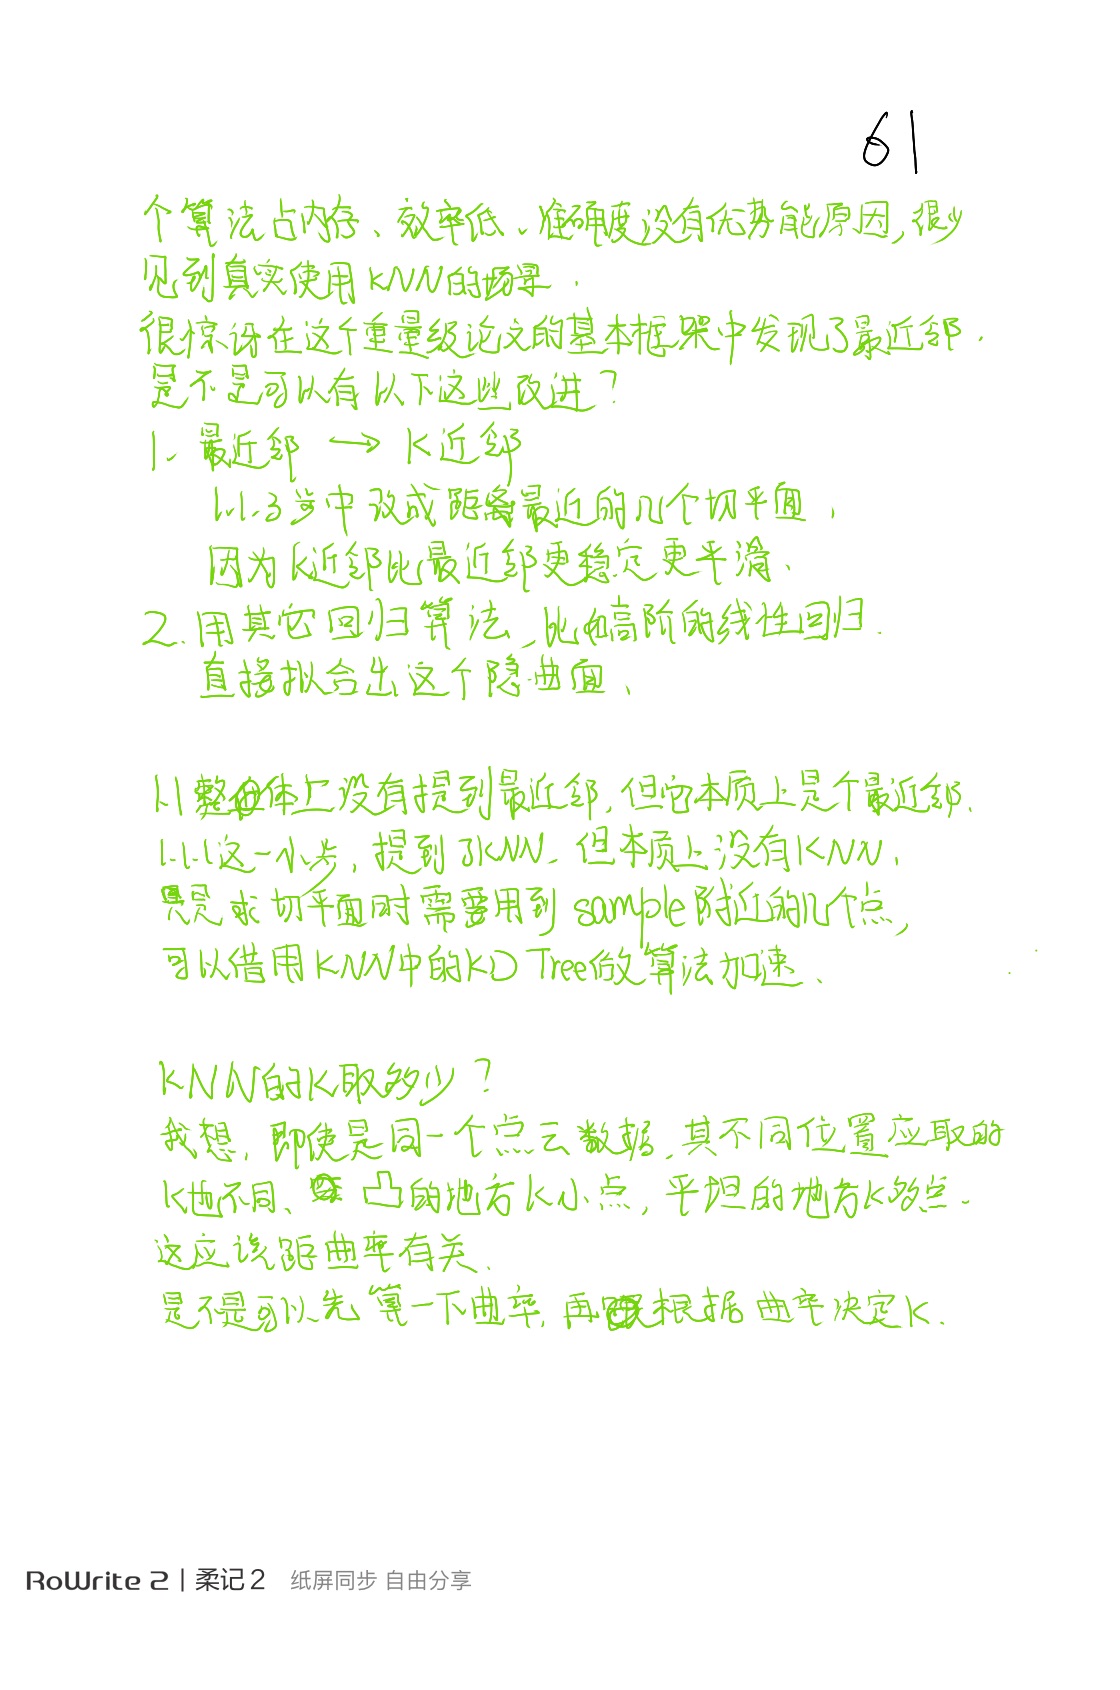 61
个算法占内存、效率低、准确度没有优势能原因,很少
见到真实使用KNN的场景.
很惊讶在这个重量级论文的基本框架中发现了最近邻.
是不是可以有以下这些改进?
1、最近邻 → K近邻
1.1.3步中改成距离最近的几个切平面.
因为K近邻比最近邻更稳定更平滑、
2.用其它回归算法,比如高阶的线性回归.
直接拟合出这个隐曲面、
1.1整体上没有提到最近邻,但它本质上是个最近邻.
1.1.1这一小步,提到了KNN、但本质上没有KNN,
只是求切平面时需要用到sample附近的几个点,
可以借用KNN中的KD Tree做算法加速、
KNN的K取多少?
我想,即使是同一个点云数据,其不同位置应取的
K也不同、凸的地方K小点,平坦的地方K多点.
这应该跟曲率有关.
是不是可以先算一下曲率,再根据曲率决定K.
RoWrite 2 | 柔记2 纸屏同步 自由分享